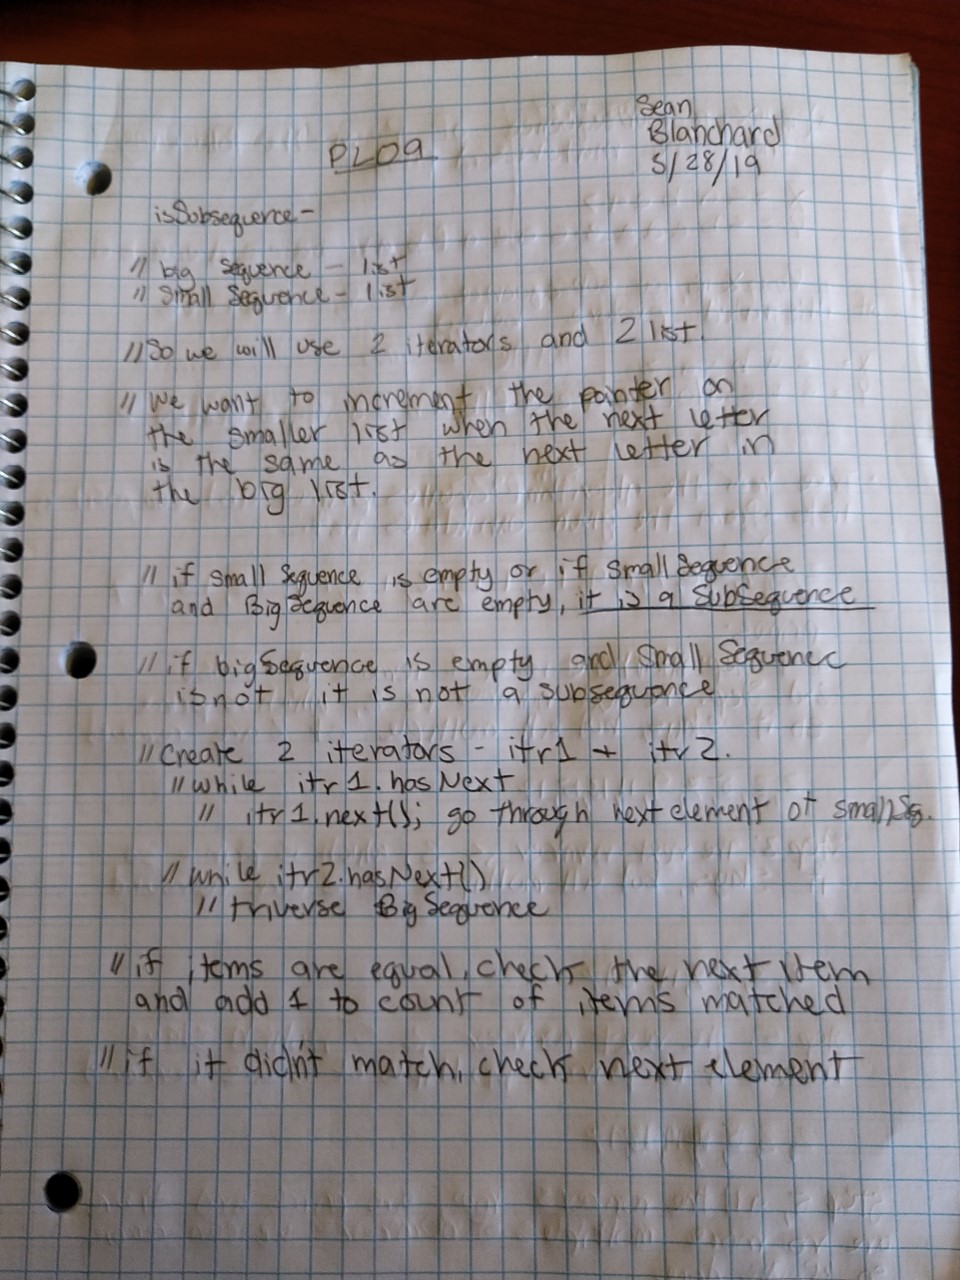 Sean
Blanchard
5/28/19
PL09
isSubsequence-
// big sequence - list
// Small Sequence - list
// So we will use 2 iterators and 2 list.
// We want to increment the pointer on
the smaller list when the next letter
is the same as the next letter in
the big list.
// if small Sequence is empty or if small Sequence
and Big Sequence are empty, it is a Subsequence
// if bigSequence is empty and Small Sequenec
is not it is not a subsequance
// Create 2 iterators - itr1 + itr2.
// while itr1.hasNext
// itr1.next(); go through next element of smallSq.
// while itr2.hasNext()
// triverse BigSequence
// if items are equal, check the next item
and add 1 to count of items matched
// if it didn't match, check next element